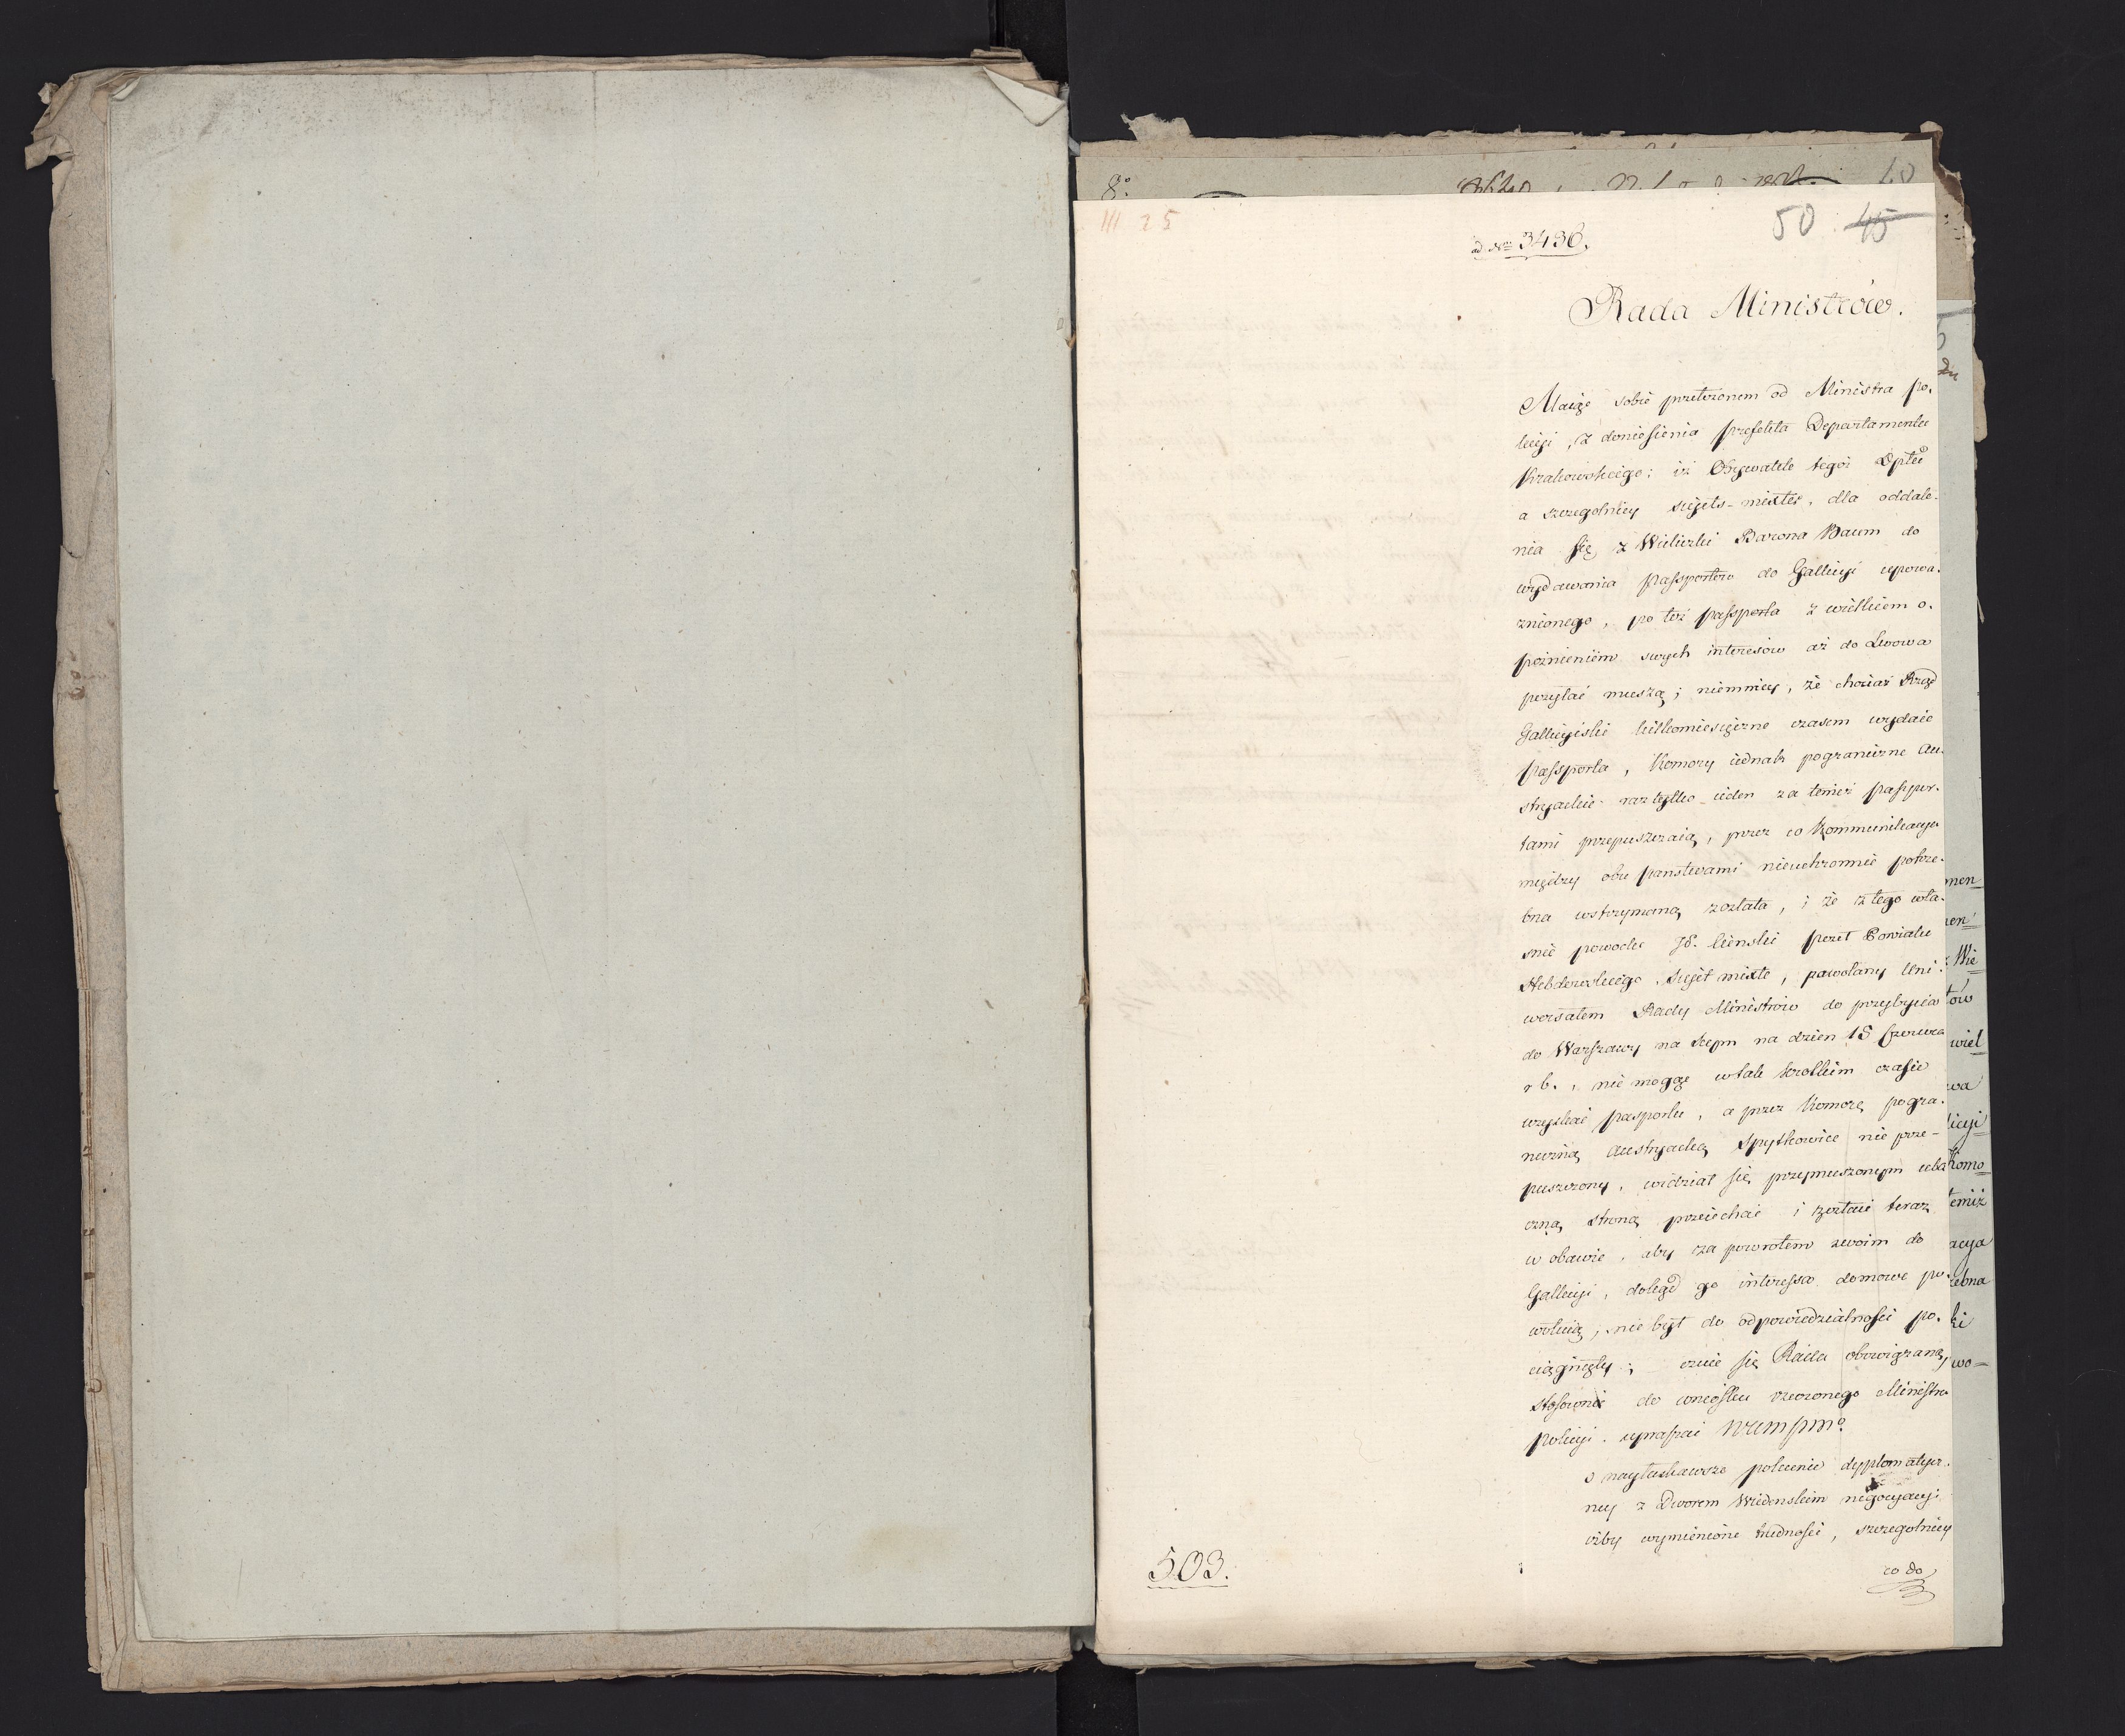 III 25
50 45
ad Nrum 3436.
Rada Ministrów.
Maiąc sobie przełożonem od Ministra Po-
licyi, z doniesienia Prefekta Departamentu
Krakowskiego; iż Obywatele tegoż Dptu
a szczegolniey sujets-mixtes, dla oddale-
nia się z Wieliczki Barona Baum do
wydawania Passportow do Gallicyi upowa-
żnionego, po też passporta z wielkiem o-
poźnieniem swych interesów aż do Lwowa
posyłać muszą; niemniey, że chociaż Rząd
Gallicyiski kilkomiesięczne czasem wydaie
Passporta, Komory iednak pograniczne Au-
stryackie raz tylko ieden za temiż passpor-
tami przepuszczaią, przez co Kommunikacya
między obu panstwami nieuchronnie potrze-
bna wstrzymaną została, i że z tego wła-
śnie powodu JP. Linski Poseł Powiatu
Hebdowskiego, Sujet mixte, powołany Uni-
wersałem Rady Ministrów do przybycia
do Warszawy na Seym na dzien 15 Czerwca
r b., nie mogąc w tak krotkim czasie
uzyskać pasportu, a przez Komorę pogra-
niczną Austryacką Spytkowice nie prze-
puszczony, widział się przymuszonym ubo-
czną stroną przeiechać i zostaie teraz
w obawie, aby za powrotem swoim do
Gallicyi, dokąd go interessa domowe po-
wołuią, nie był do odpowiedzialności po-
ciągnięty; czuie się Rada obowiązaną,
stosownie do wniosku rzeczonego Ministra
Policyi upraszać
o nayłaskawsze polecenie dyplomatycz-
ney z Dworem Wiedenskim negocyacyi
iżby wymienione trudności, szczegolniey
co do
503.